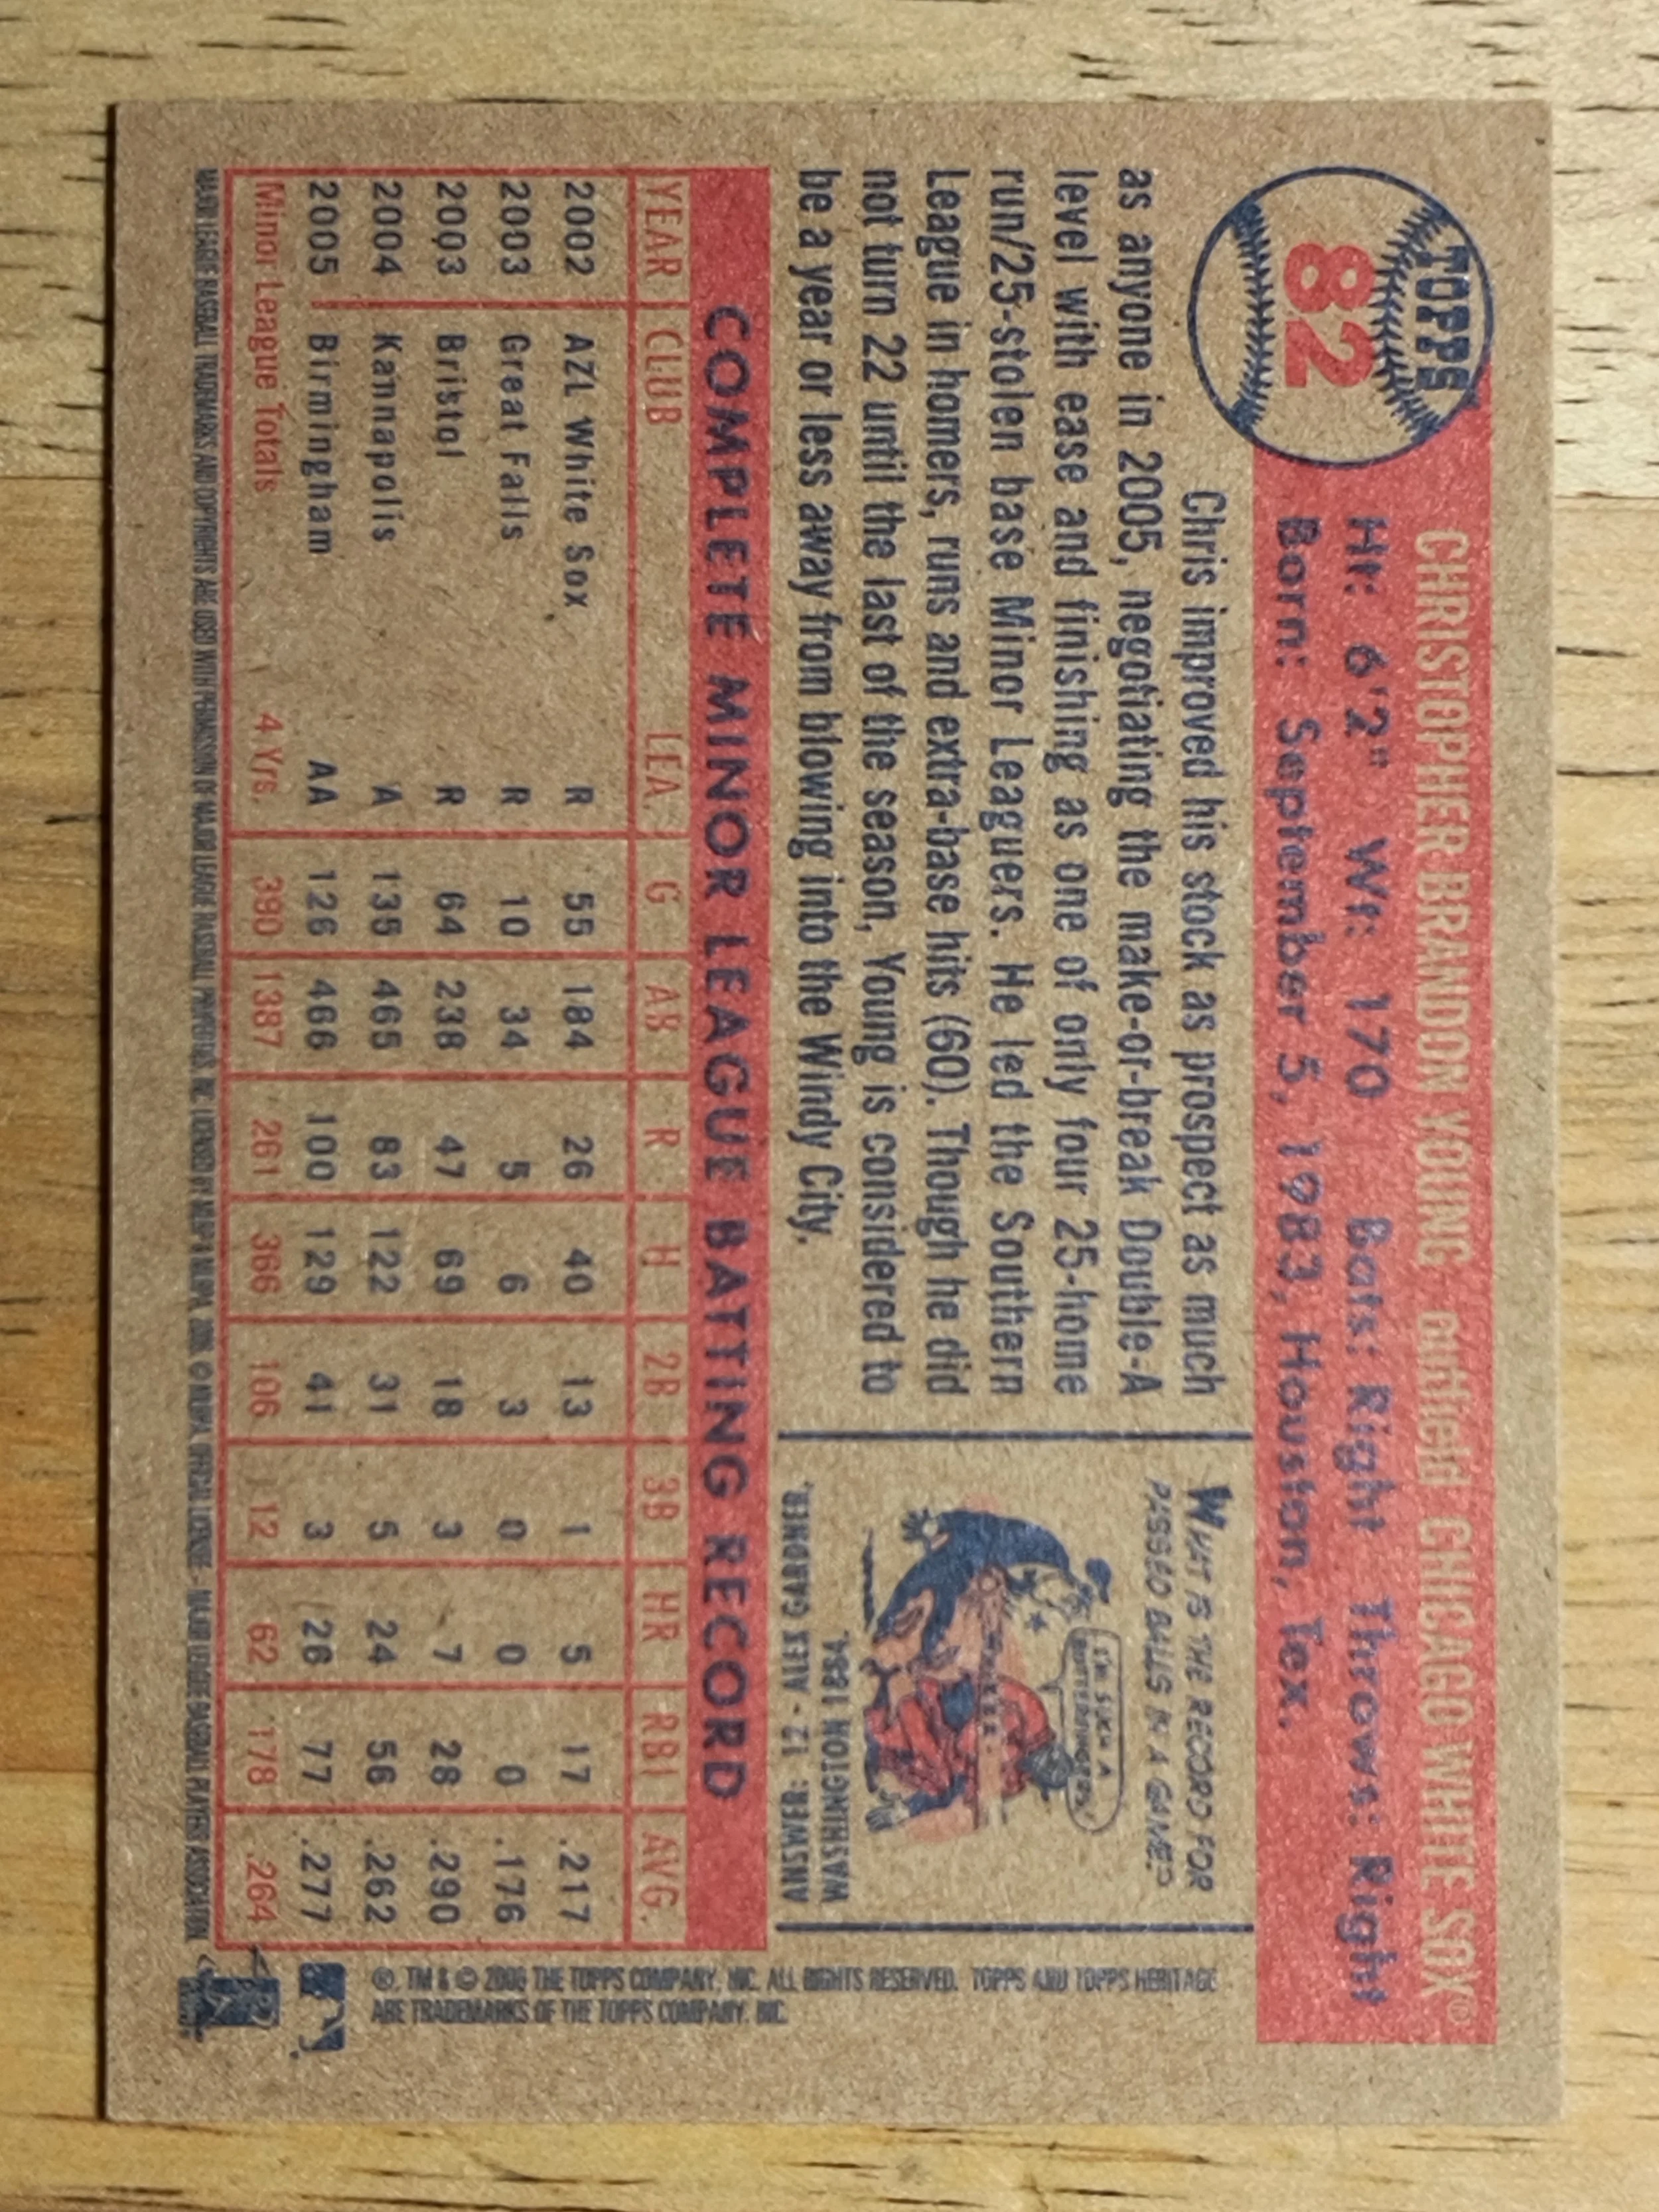 TOPPS
82
CHRISTOPHER BRANDON YOUNG outfield CHICAGO WHITE SOX®
Ht: 6'2" Wt: 170 Bats: Right Throws: Right
Born: September 5, 1983, Houston, Tex.
Chris improved his stock as prospect as much
as anyone in 2005, negotiating the make-or-break Double-A
level with ease and finishing as one of only four 25-home
run/25-stolen base Minor Leaguers. He led the Southern
League in homers, runs and extra-base hits (60). Though he did
not turn 22 until the last of the season, Young is considered to
be a year or less away from blowing into the Windy City.
WHAT IS THE RECORD FOR
PASSED BALLS IN A GAME?
I'M SUCH A
BUTTERFINGERS!
ANSWER: 12 - ALEX GARDNER,
WASHINGTON 1884.
COMPLETE MINOR LEAGUE BATTING RECORD
YEAR CLUB LEA. G AB R H 2B 3B HR RBI AVG.
2002 AZL White Sox R 55 184 26 40 13 1 5 17 .217
2003 Great Falls R 10 34 5 6 3 0 0 0 .176
2003 Bristol R 64 238 47 69 18 3 7 28 .290
2004 Kannapolis A 135 465 83 122 31 5 24 56 .262
2005 Birmingham AA 126 466 100 129 41 3 26 77 .277
Minor League Totals 4 Yrs. 390 1387 261 366 106 12 62 178 .264
®, TM & © 2006 THE TOPPS COMPANY, INC. ALL RIGHTS RESERVED. TOPPS AND TOPPS HERITAGE
ARE TRADEMARKS OF THE TOPPS COMPANY, INC.
MAJOR LEAGUE BASEBALL TRADEMARKS AND COPYRIGHTS ARE USED WITH PERMISSION OF MAJOR LEAGUE BASEBALL PROPERTIES, INC. LICENSED BY MLBPA © MLBPA, 2006. © MLBPA, OFFICIAL LICENSEE- MAJOR LEAGUE BASEBALL PLAYERS ASSOCIATION.